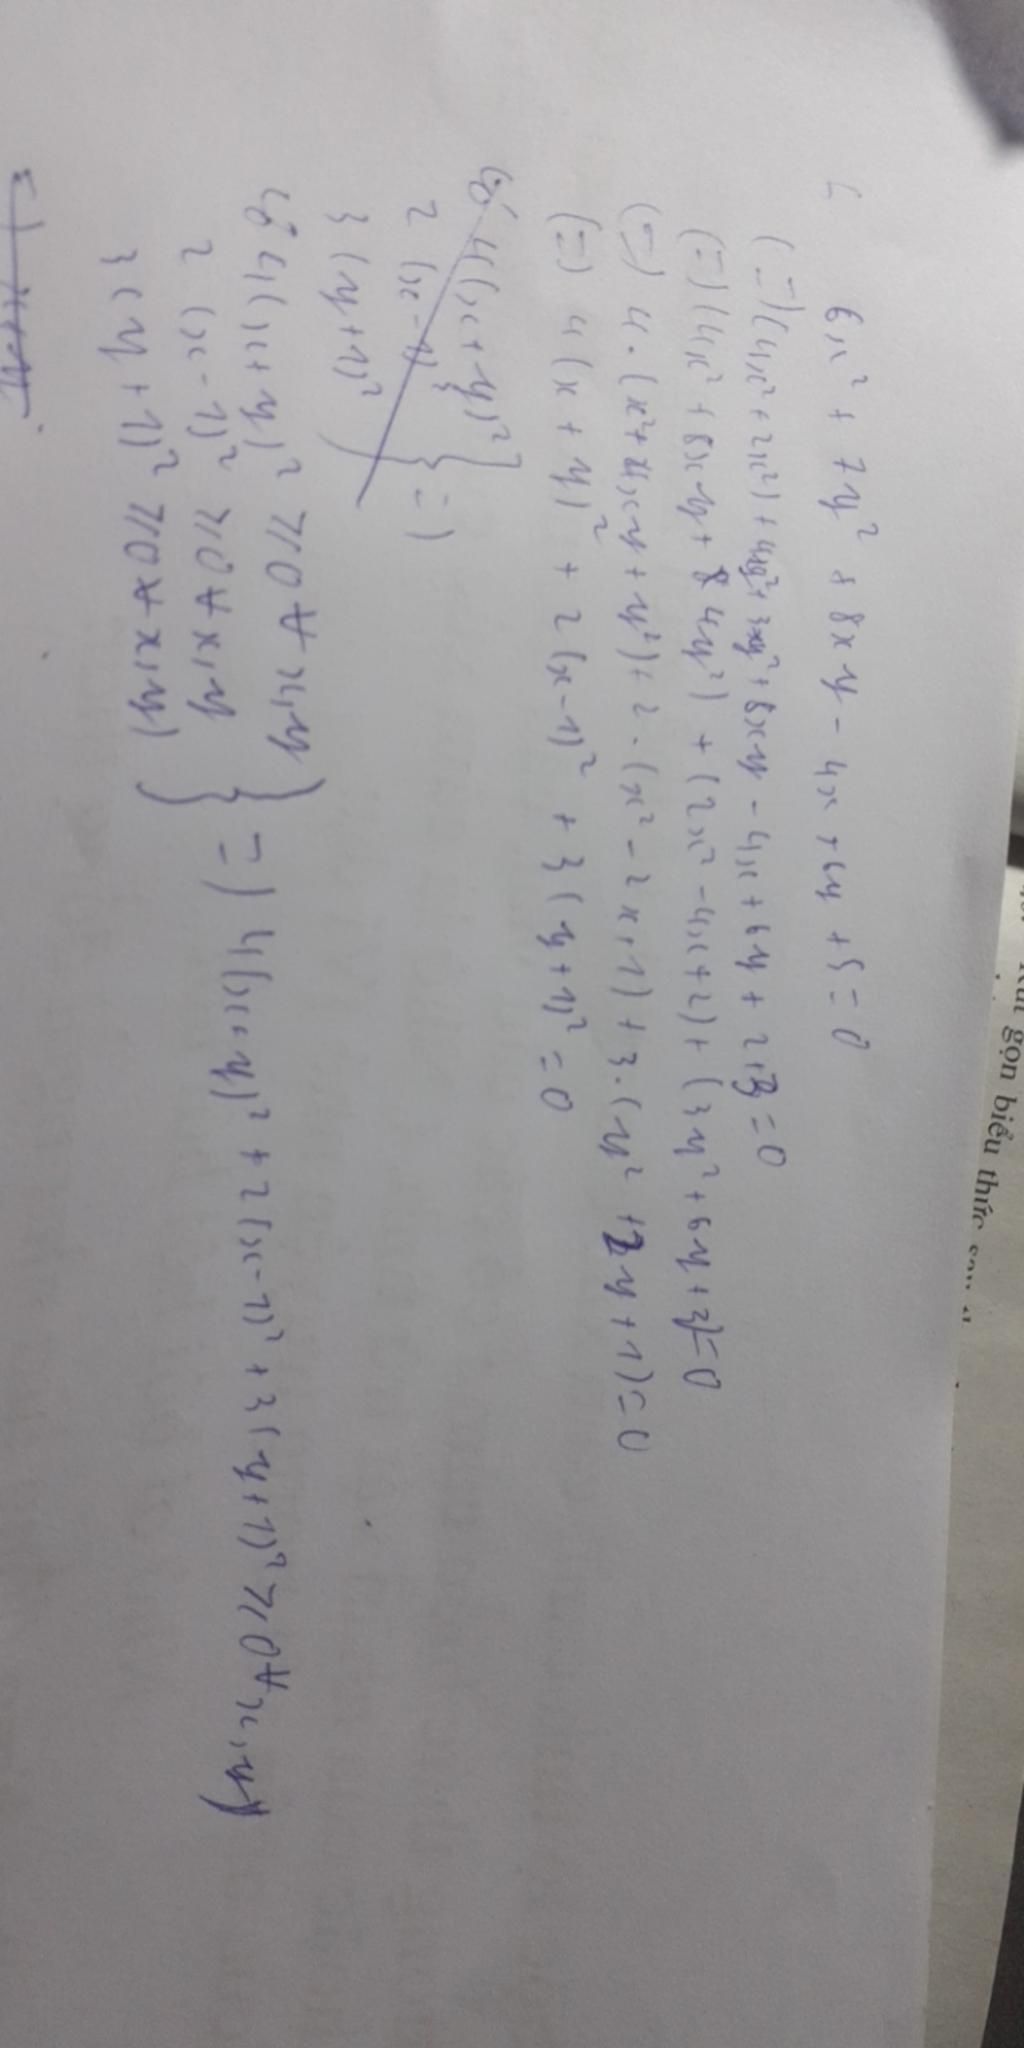 Rút gọn biểu thức sau
6x² + 7y² + 8xy - 4x + 6y + 5 = 0
(=)(4x² + 2x²) + 4y² + 3y² + 8xy - 4x + 6y + 2 + 3 = 0
(=)(4x² + 8xy + 4y²) + (2x² - 4x + 2) + (3y² + 6y + 3) = 0
(=) 4.(x² + 2xy + y²) + 2.(x² - 2x + 1) + 3.(y² + 2y + 1) = 0
(=) 4(x + y)² + 2(x - 1)² + 3(y + 1)² = 0
Có 4(x + y)²
2(x - 1)² } =)
3(y + 1)²
Có 4(x + y)² ≥ 0 ∀ x, y
2(x - 1)² ≥ 0 ∀ x, y } =) 4(x + y)² + 2(x - 1)² + 3(y + 1)² ≥ 0 ∀ x, y
3(y + 1)² ≥ 0 ∀ x, y